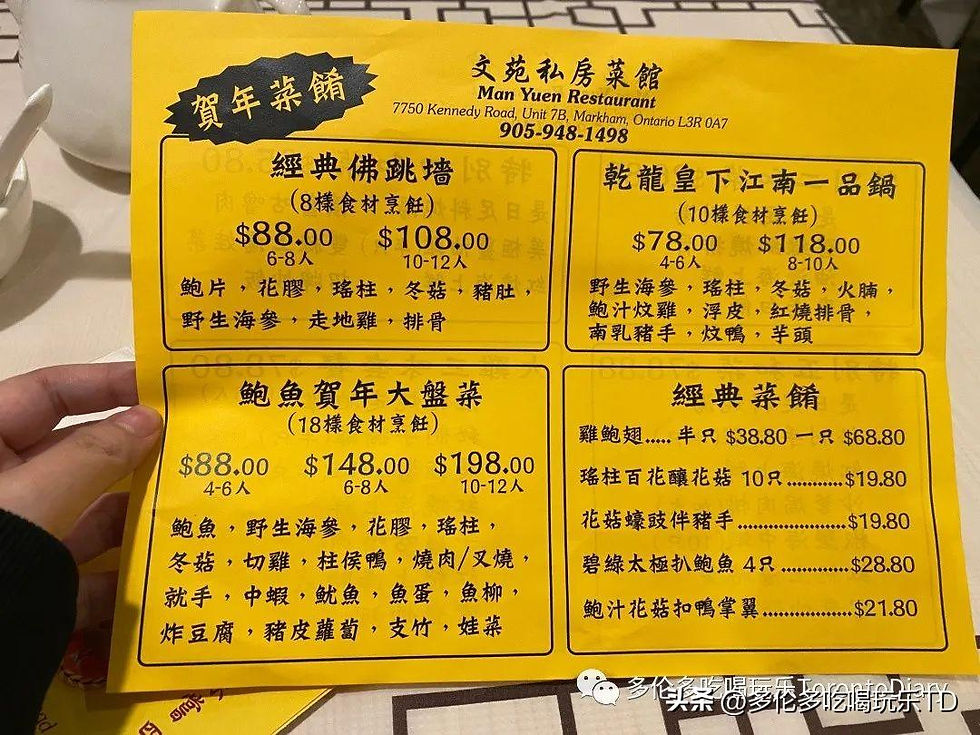 賀年菜餚
文苑私房菜館
Man Yuen Restaurant
7750 Kennedy Road, Unit 7B, Markham, Ontario L3R 0A7
905-948-1498
經典佛跳墻
(8樣食材烹飪)
$88.00 $108.00
6-8人 10-12人
鮑片，花膠，瑤柱，冬菇，豬肚，
野生海參，走地雞，排骨
乾龍皇下江南一品鍋
(10樣食材烹飪)
$78.00 $118.00
4-6人 8-10人
野生海參，瑤柱，冬菇，火腩，
鮑汁炆雞，浮皮，紅燒排骨，
南乳豬手，炆鴨，芋頭
鮑魚賀年大盤菜
(18樣食材烹飪)
$88.00 $148.00 $198.00
4-6人 6-8人 10-12人
鮑魚，野生海參，花膠，瑤柱，
冬菇，切雞，柱侯鴨，燒肉/叉燒，
就手，中蝦，魷魚，魚蛋，魚柳，
炸豆腐，豬皮蘿蔔，支竹，娃菜
經典菜餚
雞鮑翅..... 半只 $38.80 一只 $68.80
瑤柱百花釀花菇 10只...........$19.80
花菇蠔豉伴豬手...................$19.80
碧綠太極扒鮑魚 4只..............$28.80
鮑汁花菇扣鴨掌翼...............$21.80
多伦多吃喝玩乐TorontoDiary
头条 @多伦多吃喝玩乐TD